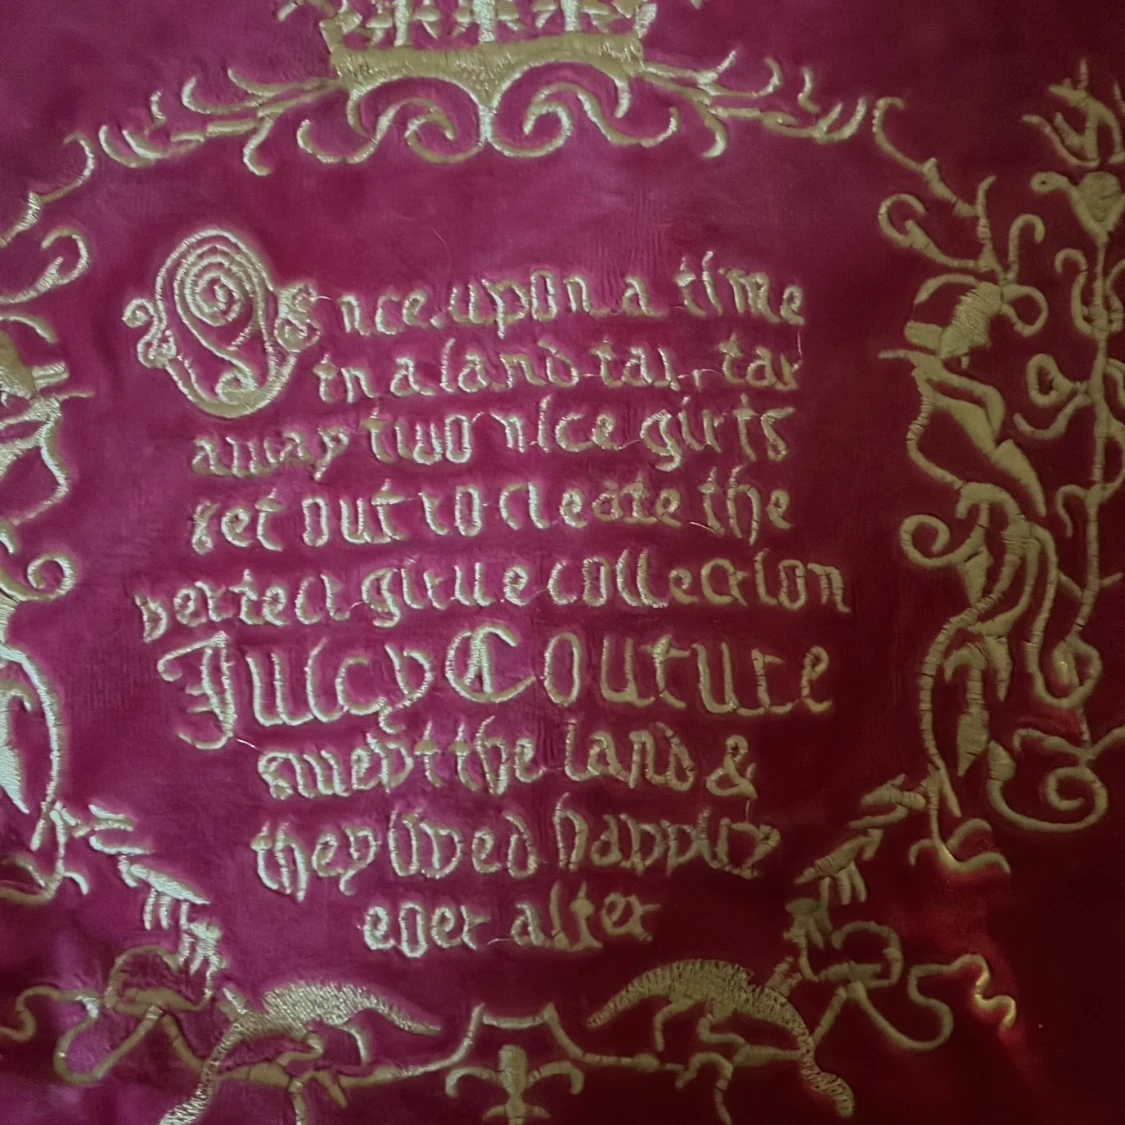 Once upon a time
in a land far, far
away two nice girls
set out to create the
perfect girlie collection
Juicy Couture
swept the land &
they lived happily
ever after